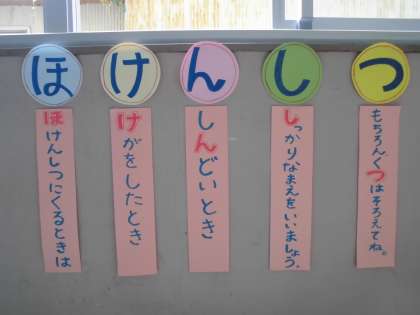 ほけんしつ
ほけんしつにくるときは
けがをしたとき
しんどいとき
しっかりなまえをいいましょう。
もちろんくつはそろえてね。